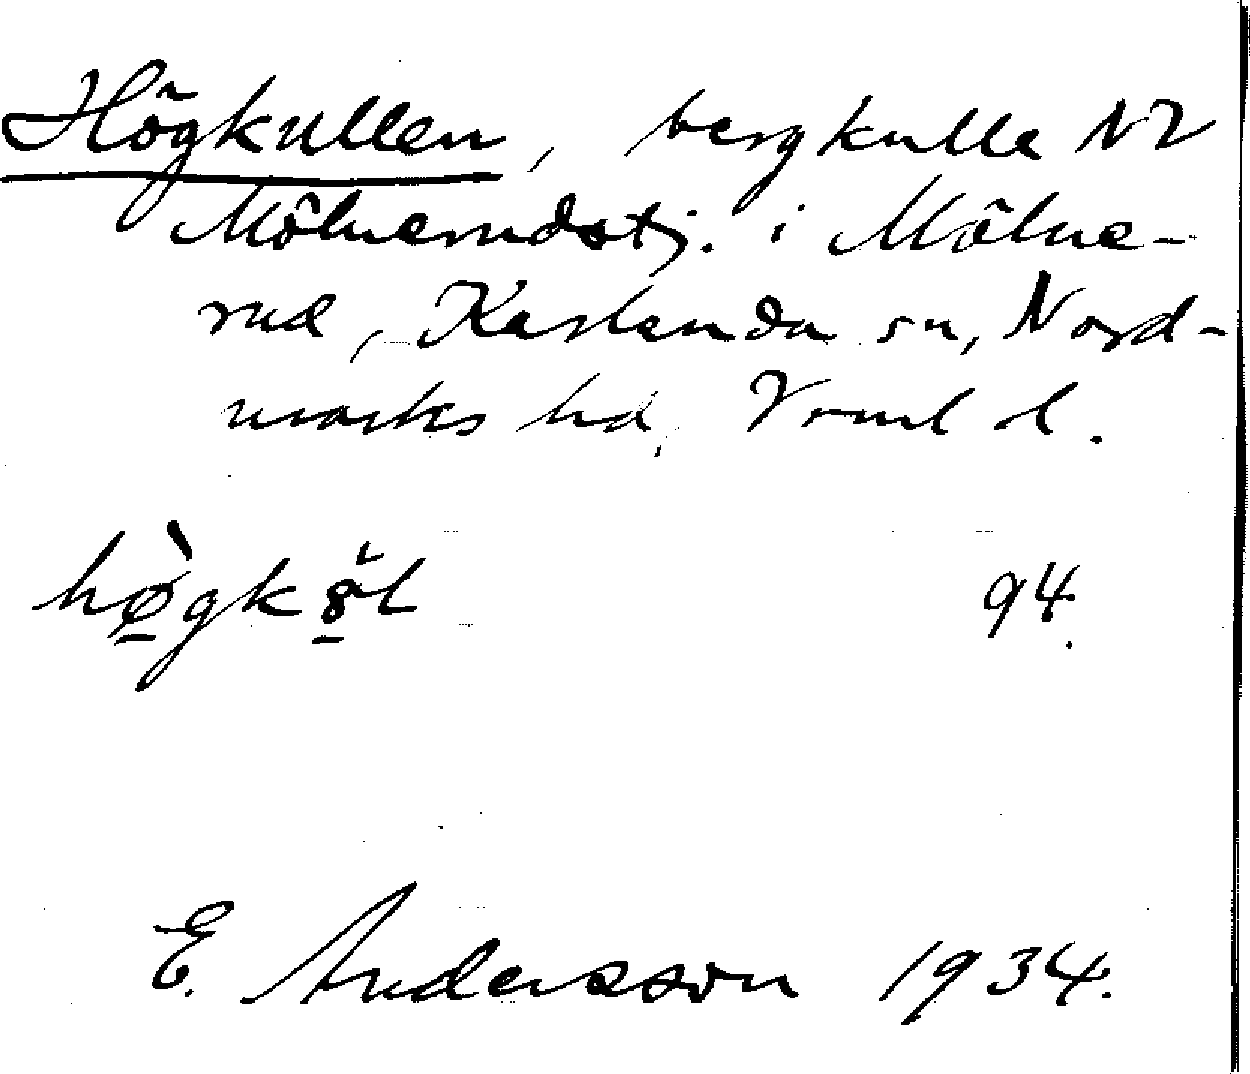 Högkullen, bergkulle NV
Mölnerudstj. i Mölne-
rud, Karlanda sn, Nord-
marks hd, Vrml l.
hø̱̀gkl 94.
E. Andersson 1934.